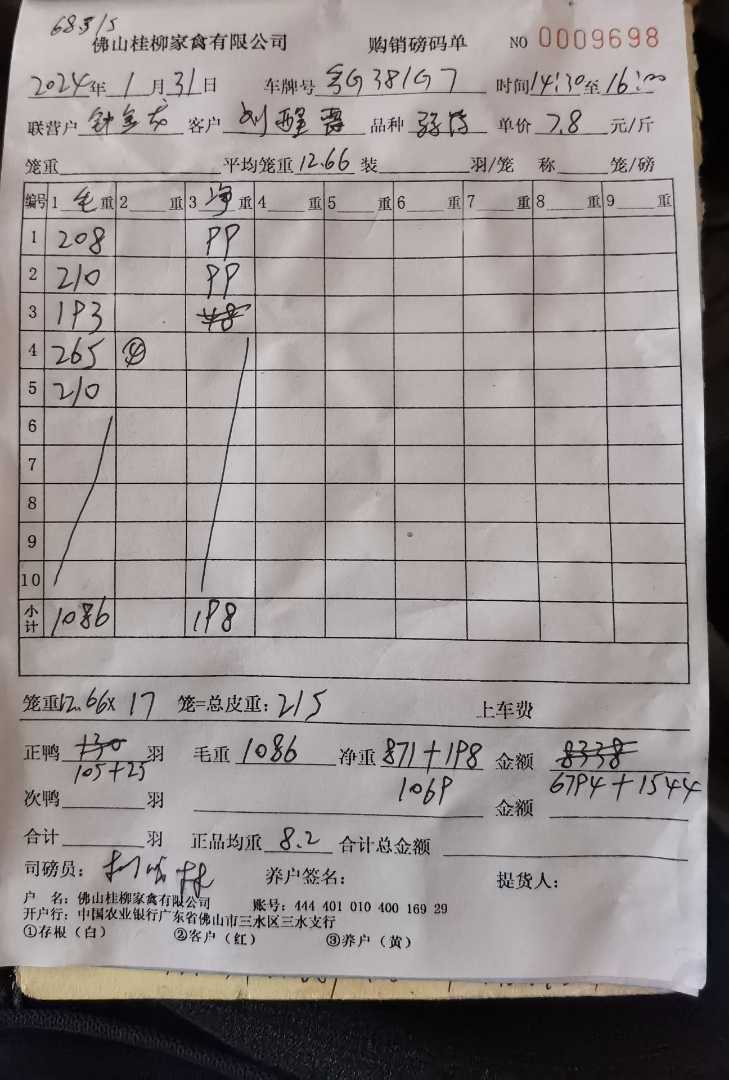 68315
佛山桂柳家禽有限公司 购销磅码单 NO 0009698
2024年1月31日 车牌号 粤G381G7 时间14:30至16:00
联营户 钟 客户 刘 品种 单价 7.8 元/斤
笼重 平均笼重12.66 装 羽/笼 称 笼/磅
编号 1毛重 2重 3净重 4重 5重 6重 7重 8重 9重
1 208 99
2 210 99
3 193 48
4 265 ④
5 210
6
7
8
9
10
小计 1086 198
笼重12.66× 17 笼=总皮重:215 上车费
正鸭 130 羽 毛重 1086 净重 871+198 金额 8338
105+25 1069 6794+1544
次鸭 羽 金额
合计 羽 正品均重 8.2 合计总金额
司磅员: 养户签名: 提货人:
户 名:佛山桂柳家禽有限公司 账号:444 401 010 400 169 29
开户行:中国农业银行广东省佛山市三水区三水支行
①存根(白) ②客户(红) ③养户(黄)